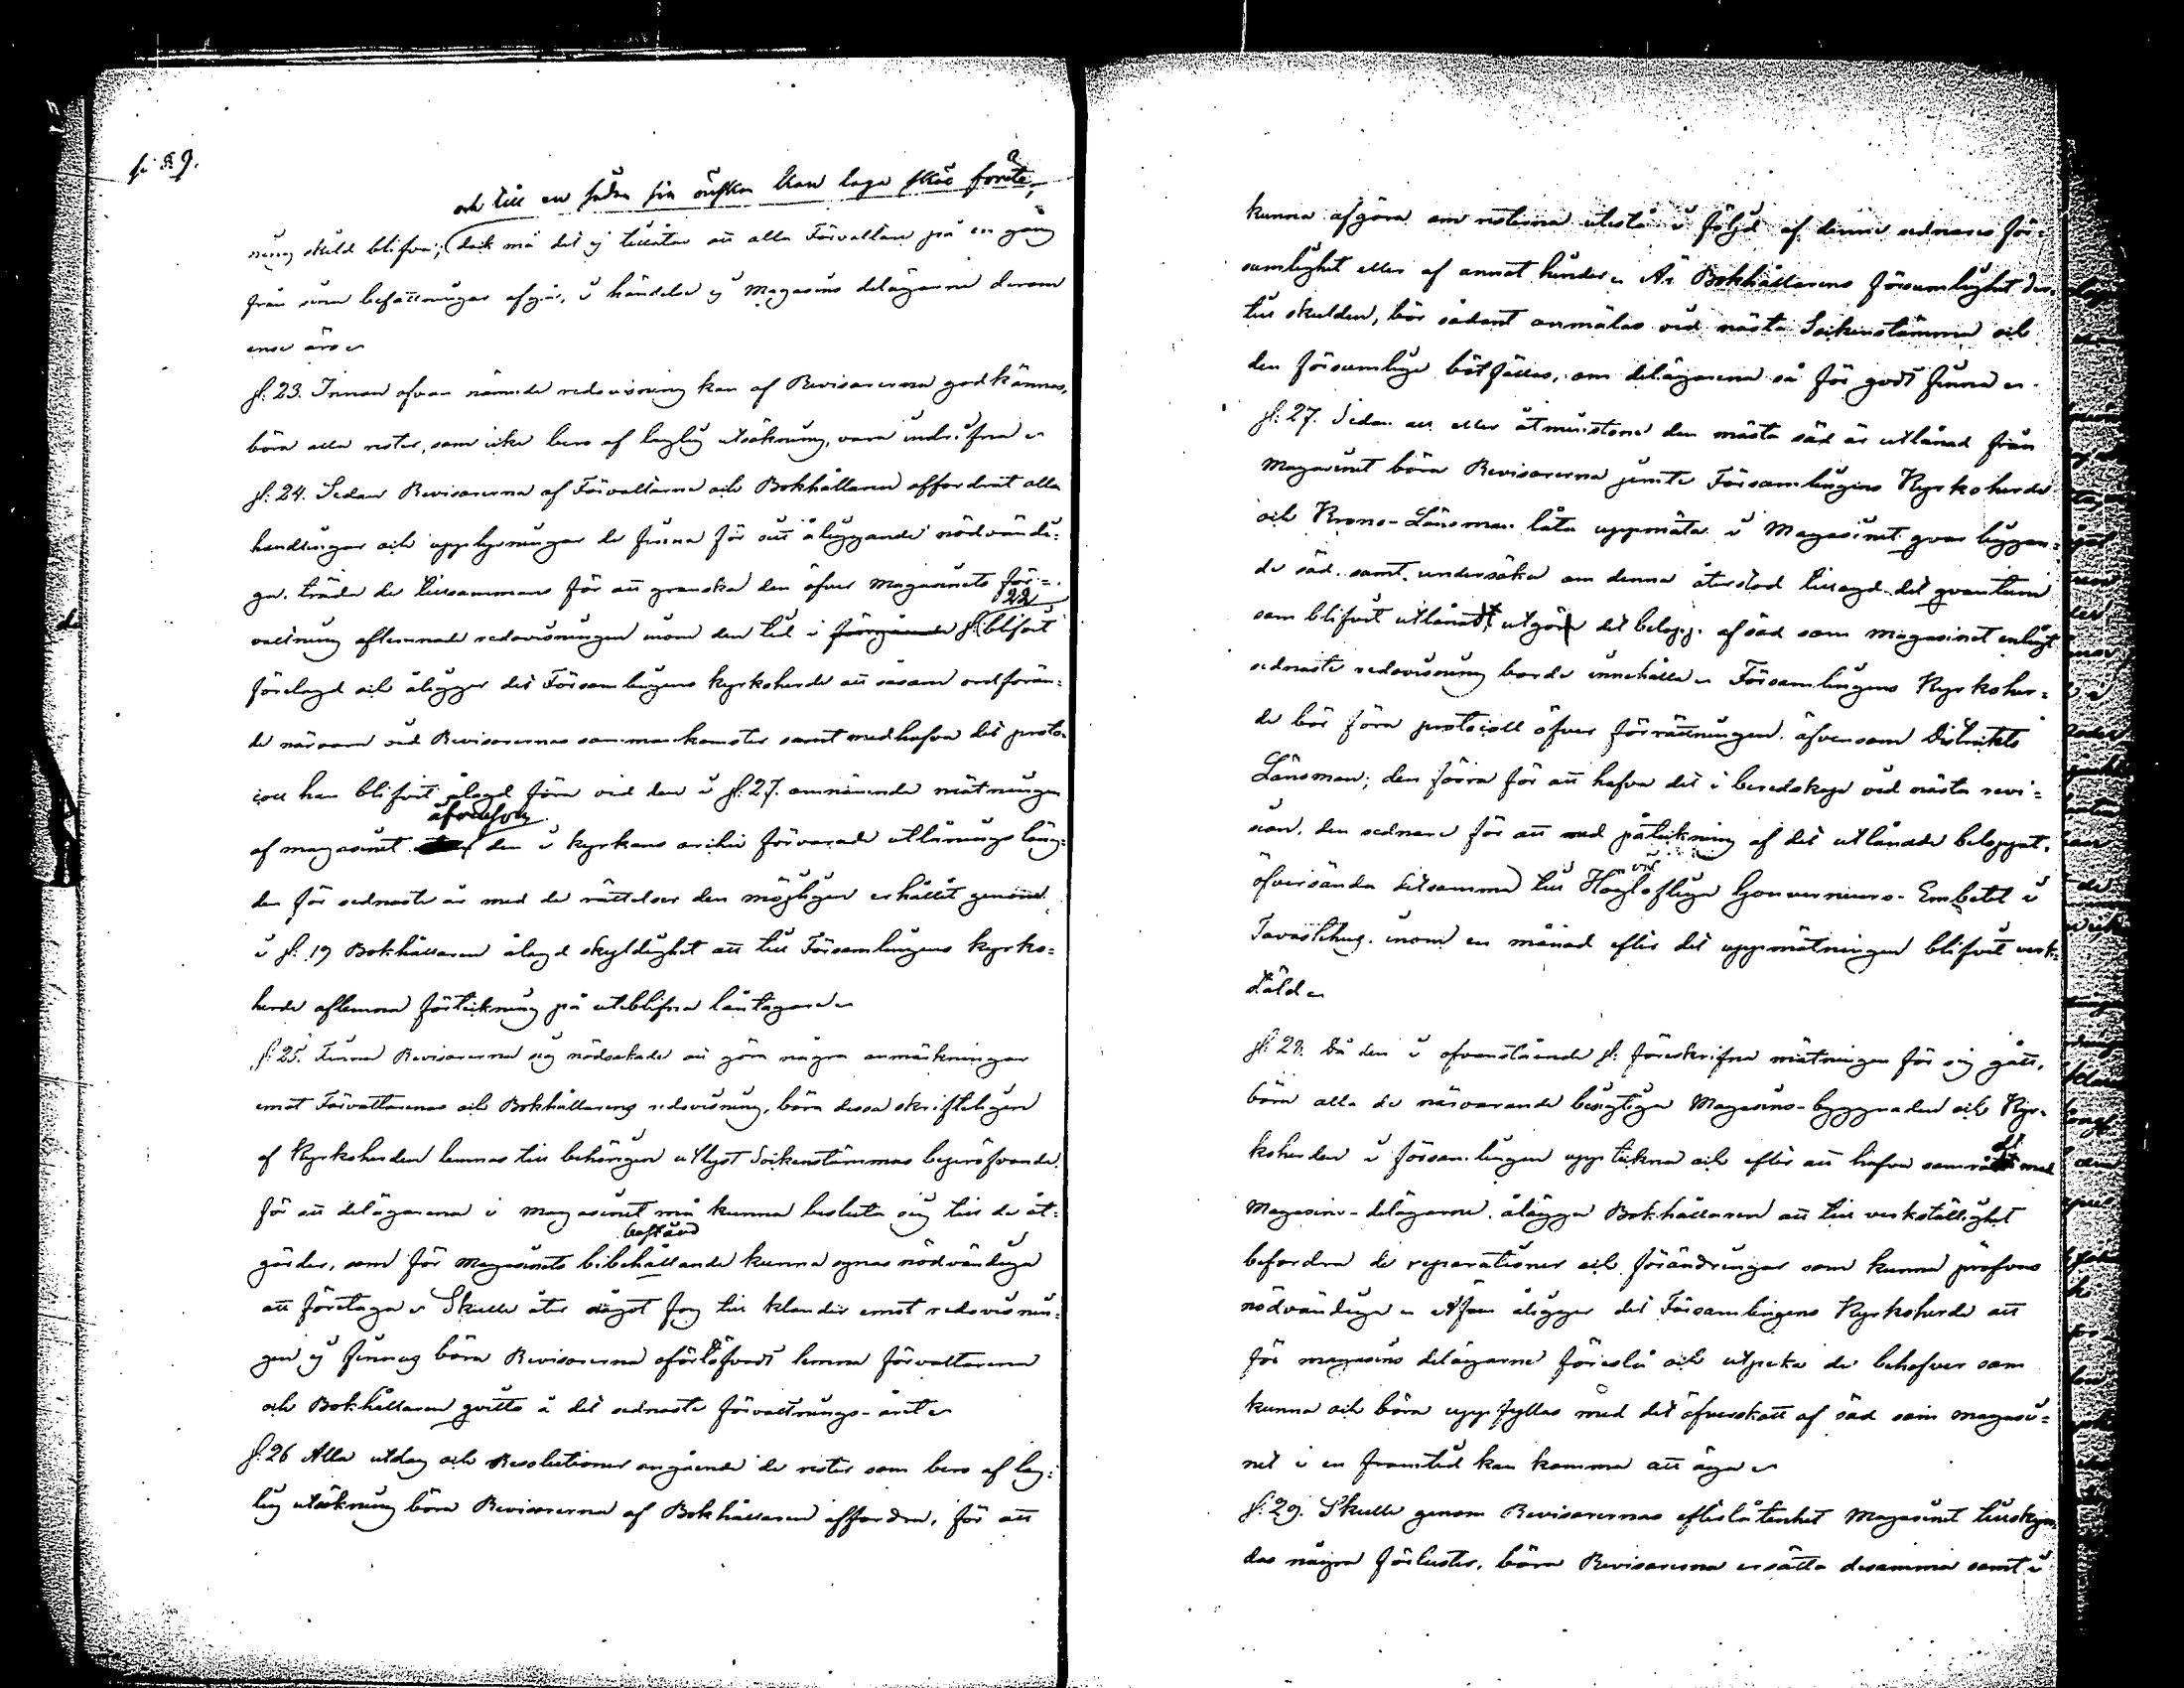 se § 9.
och till en sådan sin önskan kan laga skäl förete,
ning skild blifva; dock må det ej tillåtas att alla Förvaltare på en gång
från sina befattningar afgår, i händelse ej Magasins delägarne derom
ense äro
§: 23. Innan ofvan nämnde redovisning kan af Revisorerna godkännas,
böra alla rester, som icke bero af laglig utsökning, vara indrifna
§: 24. Sedan Revisorerna af Förvaltarne och Bokhållaren affordrat alla
handlingar och upplysningar de finna för sitt åliggande nödvändi=
ga, träda de tillsammans för att granska den öfver Magasinets för=
22
valtning aflemnade redovisningen inom den tid i föregående §: blifvit
förelagd och åligger det Församlingens kyrkoherde att såsom ordföran=
de närvara vid Revisorernas sammankomster samt medhafva det proto=
coll han blifvit ålagd föra vid den i §: 27. omnämnde mätningen
äfvensom
af magasinet den i kyrkans archiv förvarade utlånings läng=
den för sednaste år med de rättelser den möjligen erhållit genom
i §: 19 Bokhållaren ålagd skyldighet att till Församlingens kyrko=
herde aflemna förteckning på uteblifna låntagare
§: 25. Finna Revisorerna sig nödsakade att göra några anmärkningar
emot Förvaltarenas och Bokhållarens redovisning, böra dessa skrifteligen
af Kyrkoherden lemnas till behörigen utlyst Sockenstämmas bepröfvande,
för att delägarena i magasinet må kunna besluta sig till de åt=
bestånd
gärder, som för Magasinets bibehållande kunna synas nödvändiga
att företaga Skulle åter något fog till klander emot redovisnin=
gen ej finnas böra Revisorerna oförtöfvadt lemna förvaltarena
och Bokhållaren qvitto å det sednaste förvaltnings-året
§: 26 Alla utslag och Resolutioner angående de rester som bero af lag=
lig utsökning böra Revisorerna af Bokhållaren affordra, för att
kunna afgöra om resterna utestå i följd af dennes sednares för=
sumlighet eller af annat hinder Är Bokhållarens försumlighet der=
till skulden, bör sådant anmälas vid nästa Sockenstämma och
den försumlige bötfällas, om delägarena så för godt finna
§: 27. Sedan all eller åtminstone den mästa säd är utlånad från
Magasinet böra Revisorerna jemte Församlingens Kyrkoherde
och Krono-Länsman låta uppmäta i Magasinet qvar liggan=
de säd, samt undersöka om denna återstod tillagd det qvantum
som blifvit utlånadt, utgör det belopp af säd som magasinet enligt
sednaste redovisning borde innehålla Församlingens Kyrkoher=
de bör föra protocoll öfver förrättningen, äfvensom Distrikts
Länsman; den förra för att hafva det i beredskap vid nästa revi=
sion, den sednare för att med påteckning af det utlånade beloppet,
öfversända detsamma till Höglofliga Gouverneurs-Embetet i
Tavastehus, inom en månad efter det uppmätningen blifvit verk=
ställd
§: 28. Då den i ofvanstående §: föreskrifna mätningen för sig gått,
böra alla de närvarande besigtiga Magasins-byggnaden och Kyr=
koherden i församlingen uppteckna och efter att hafva samrådt med
Magasins-delägarne, ålägga Bokhållaren att till verkställighet
befordra de reparationer och förändringar som kunna pröfvas
nödvändiga Äfven åligger det Församlingens Kyrkoherde att
för magasins delägarne föreslå och utpeka de behofver som
kunna och böra uppfyllas med det öfverskott af säd som magasi=
net i en framtid kan komma att äga
§: 29. Skulle genom Revisorernas efterlåtenhet Magasinet tillskyn=
das några förluster, böra Revisorerna ersätta desamma samt i